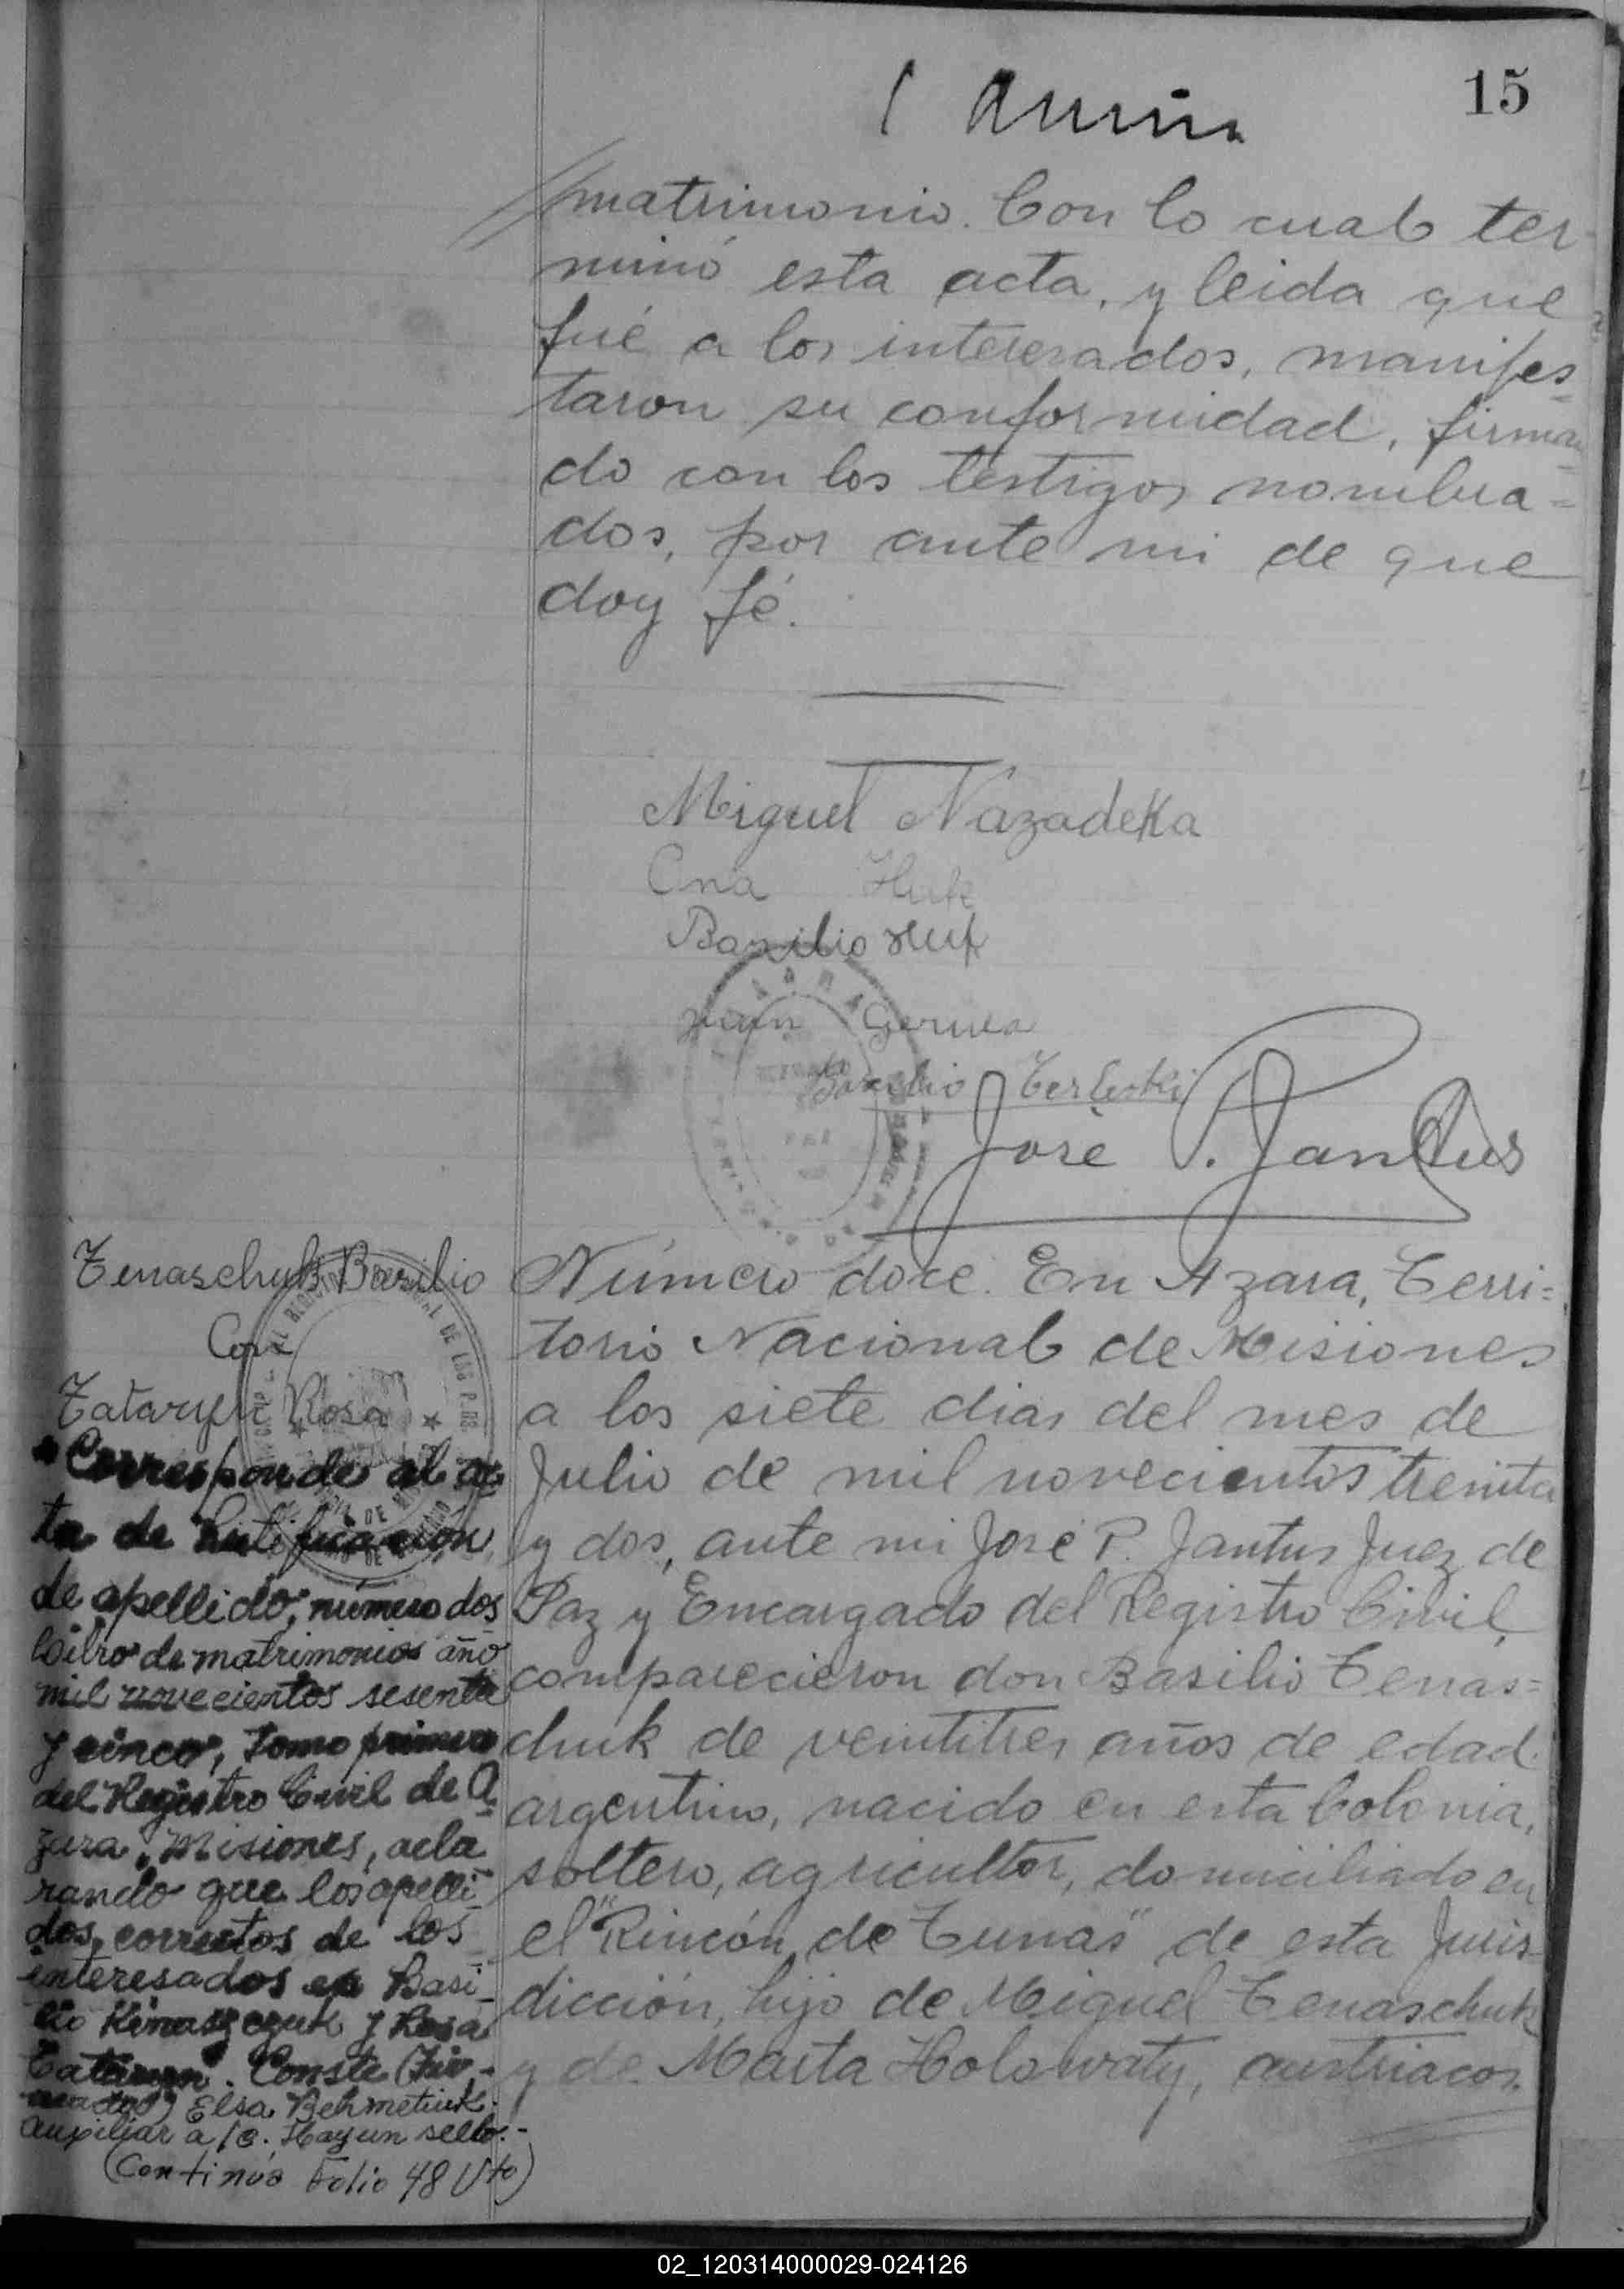 15
matrimonio. Con lo cual ter-
minó esta acta, y leida que
fué a los interesados, manifes=
taron su conformidad, firman=
do con los testigos nombra=
dos, por ante mi de que
doy fé.
Miguel Nazadeka
Ana Huk
Basilio Huk
Juan Gerula
Basilio Terleski
José P. Jantus
Tenaschuk Basilio
Con
Tataryn Rosa
Corresponde al ac
ta de
de apellido, número dos
Libro de matrimonios año
mil novecientos sesenta
y cinco, Tomo primero
del Registro Civil de A
zara, Misiones, acla
rando que los apelli
dos, correctos de los
interesados es Basi
lio Kinaszczuk y Rosa
Tataryn. Conste (Fir-
mado) Elsa Behmetiuk.
Auxiliar a/c. Hay un sello.-
(Continúa Folio 48 Vto)
Número doce. En Azara, Terri=
torio Nacional de Misiones
a los siete dias del mes de
Julio de mil novecientos treinta
y dos, ante mi José P. Jantus Juez de
Paz y Encargado del Registro Civil,
comparecieron don Basilio Tenas=
chuk de veintitres años de edad.
argentino, nacido en esta Colonia,
soltero, agricultor, domiciliado en
el "Rincón de Tunas" de esta Juris-
dicción, hijo de Miguel Tenaschuk
y de Marta Holowaty, austriacos.
02_120314000029-024126